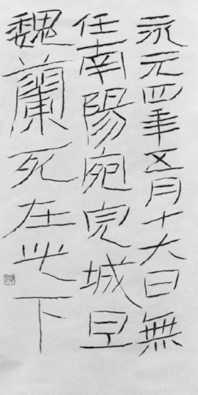 永元四年五月十六日無
任南陽宛完城旦
魏蘭死在此下